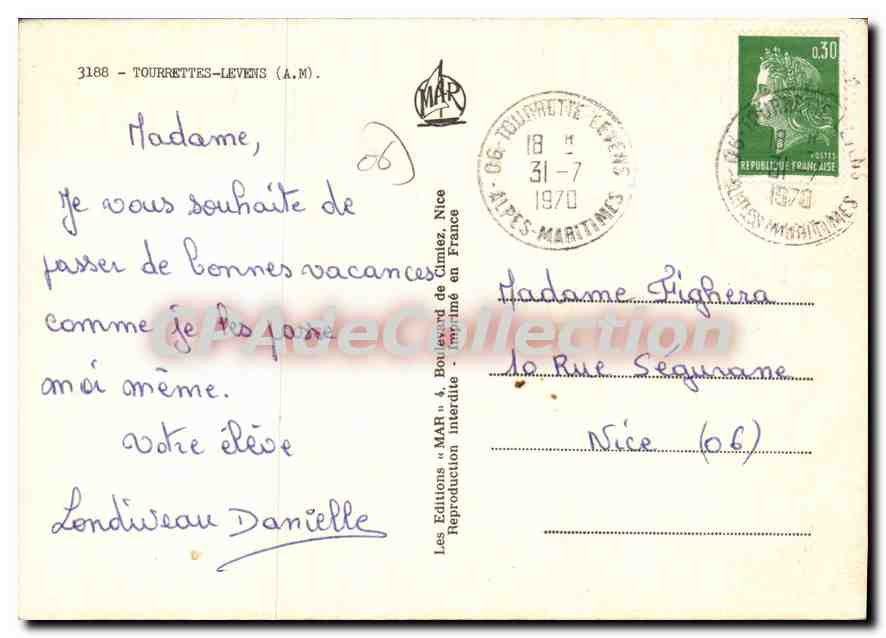 3188 - TOURRETTES-LEVENS (A.M).
MAR
Madame,
06
Je vous souhaite de
passer de bonnes vacances
comme je les passe
moi même.
Votre élève
Londiveau Danielle
Les Editions « MAR » 4, Boulevard de Cimiez, Nice
Reproduction interdite - Imprimé en France
06-TOURRETTE LEVENS
18 H
31-7
1970
ALPES-MARITIMES
0,30
POSTES
REPUBLIQUE FRANÇAISE
06-TOURRETTE LEVENS
18 H
31-7
1970
ALPES-MARITIMES
Madame Fighera
10 Rue Ségurane
Nice (06)
CPAdeCollection